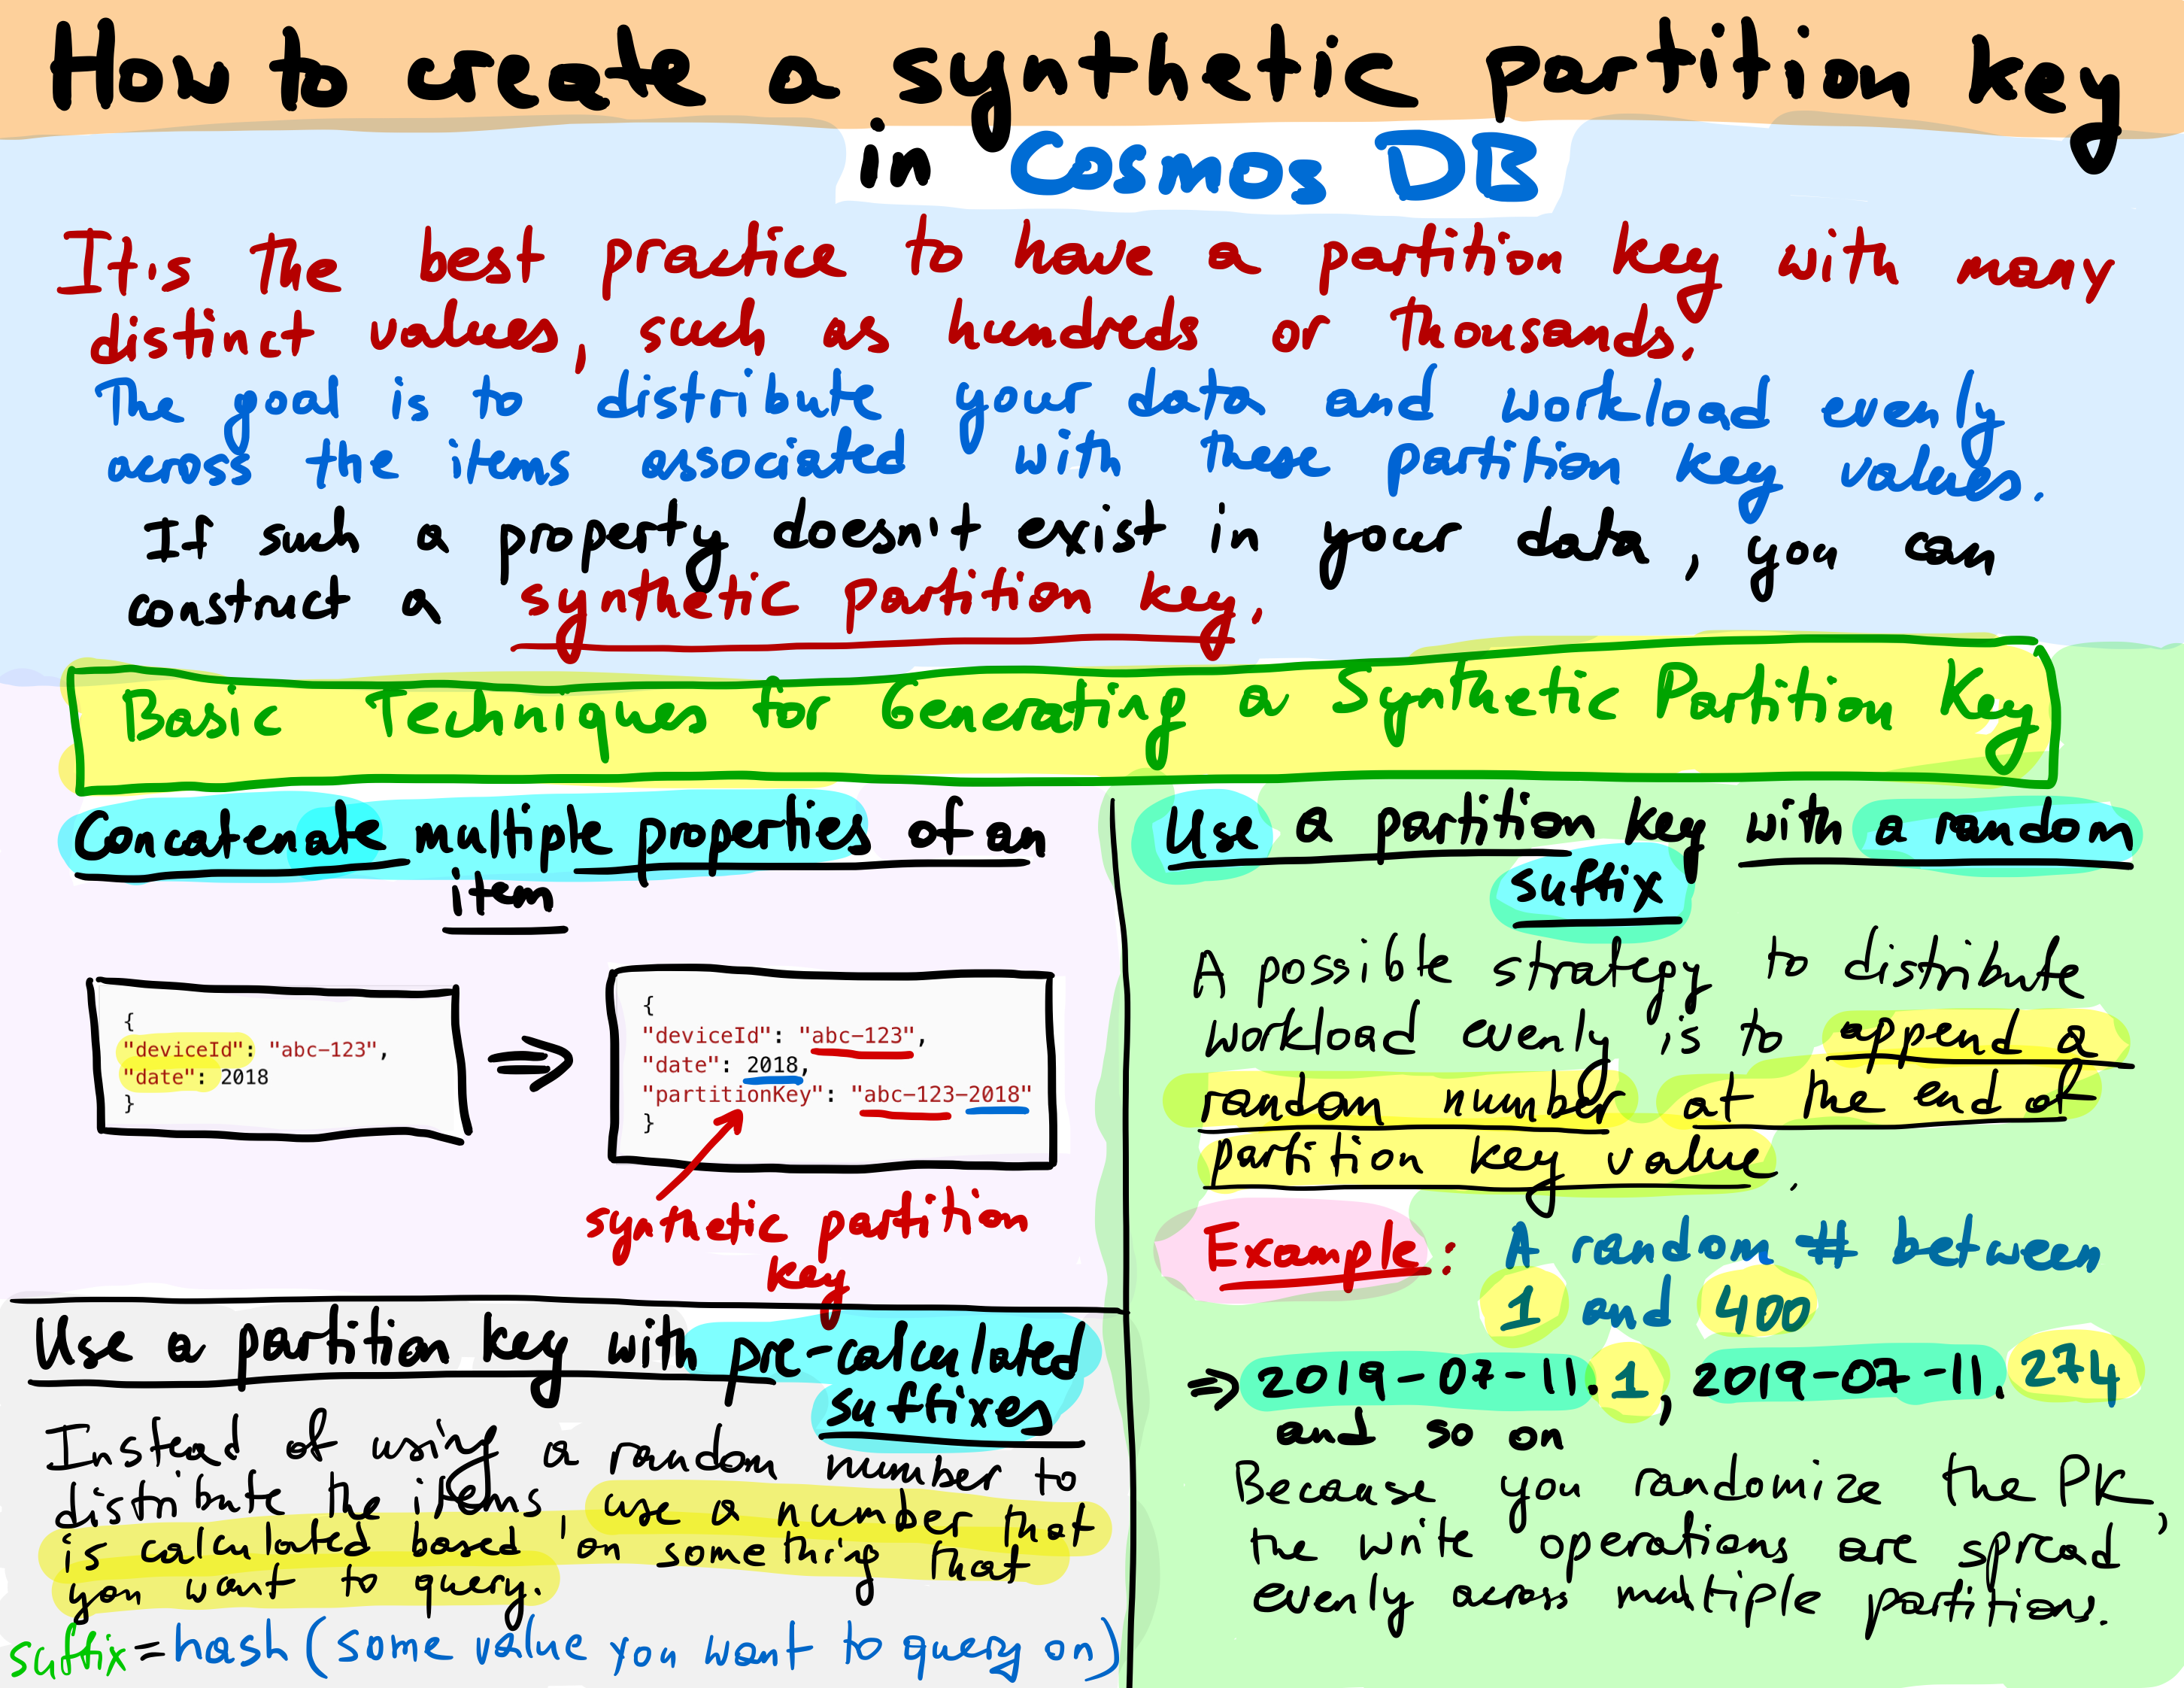 How to create a synthetic partition key
in Cosmos DB
It's the best practice to have a partition key with many
distinct values, such as hundreds or thousands.
The goal is to distribute your data and workload evenly
across the items associated with these partition key values.
If such a property doesn't exist in your data, you can
construct a synthetic partition key.
Basic Techniques for Generating a Synthetic Partition Key
Concatenate multiple properties of an
item
{
"deviceId": "abc-123",
"date": 2018
}
⇒
{
"deviceId": "abc-123",
"date": 2018,
"partitionKey": "abc-123-2018"
}
synthetic partition
key
Use a partition key with pre-calculated
suffixes
Instead of using a random number to
distribute the items, use a number that
is calculated based on something that
you want to query.
suffix = hash (some value you want to query on)
Use a partition key with a random
suffix
A possible strategy to distribute
workload evenly is to append a
random number at the end of
partition key value.
Example: A random # between
1 and 400
⇒ 2019-07-11.1, 2019-07-11.274
and so on
Because you randomize the PK,
the write operations are spread
evenly across multiple partitions.